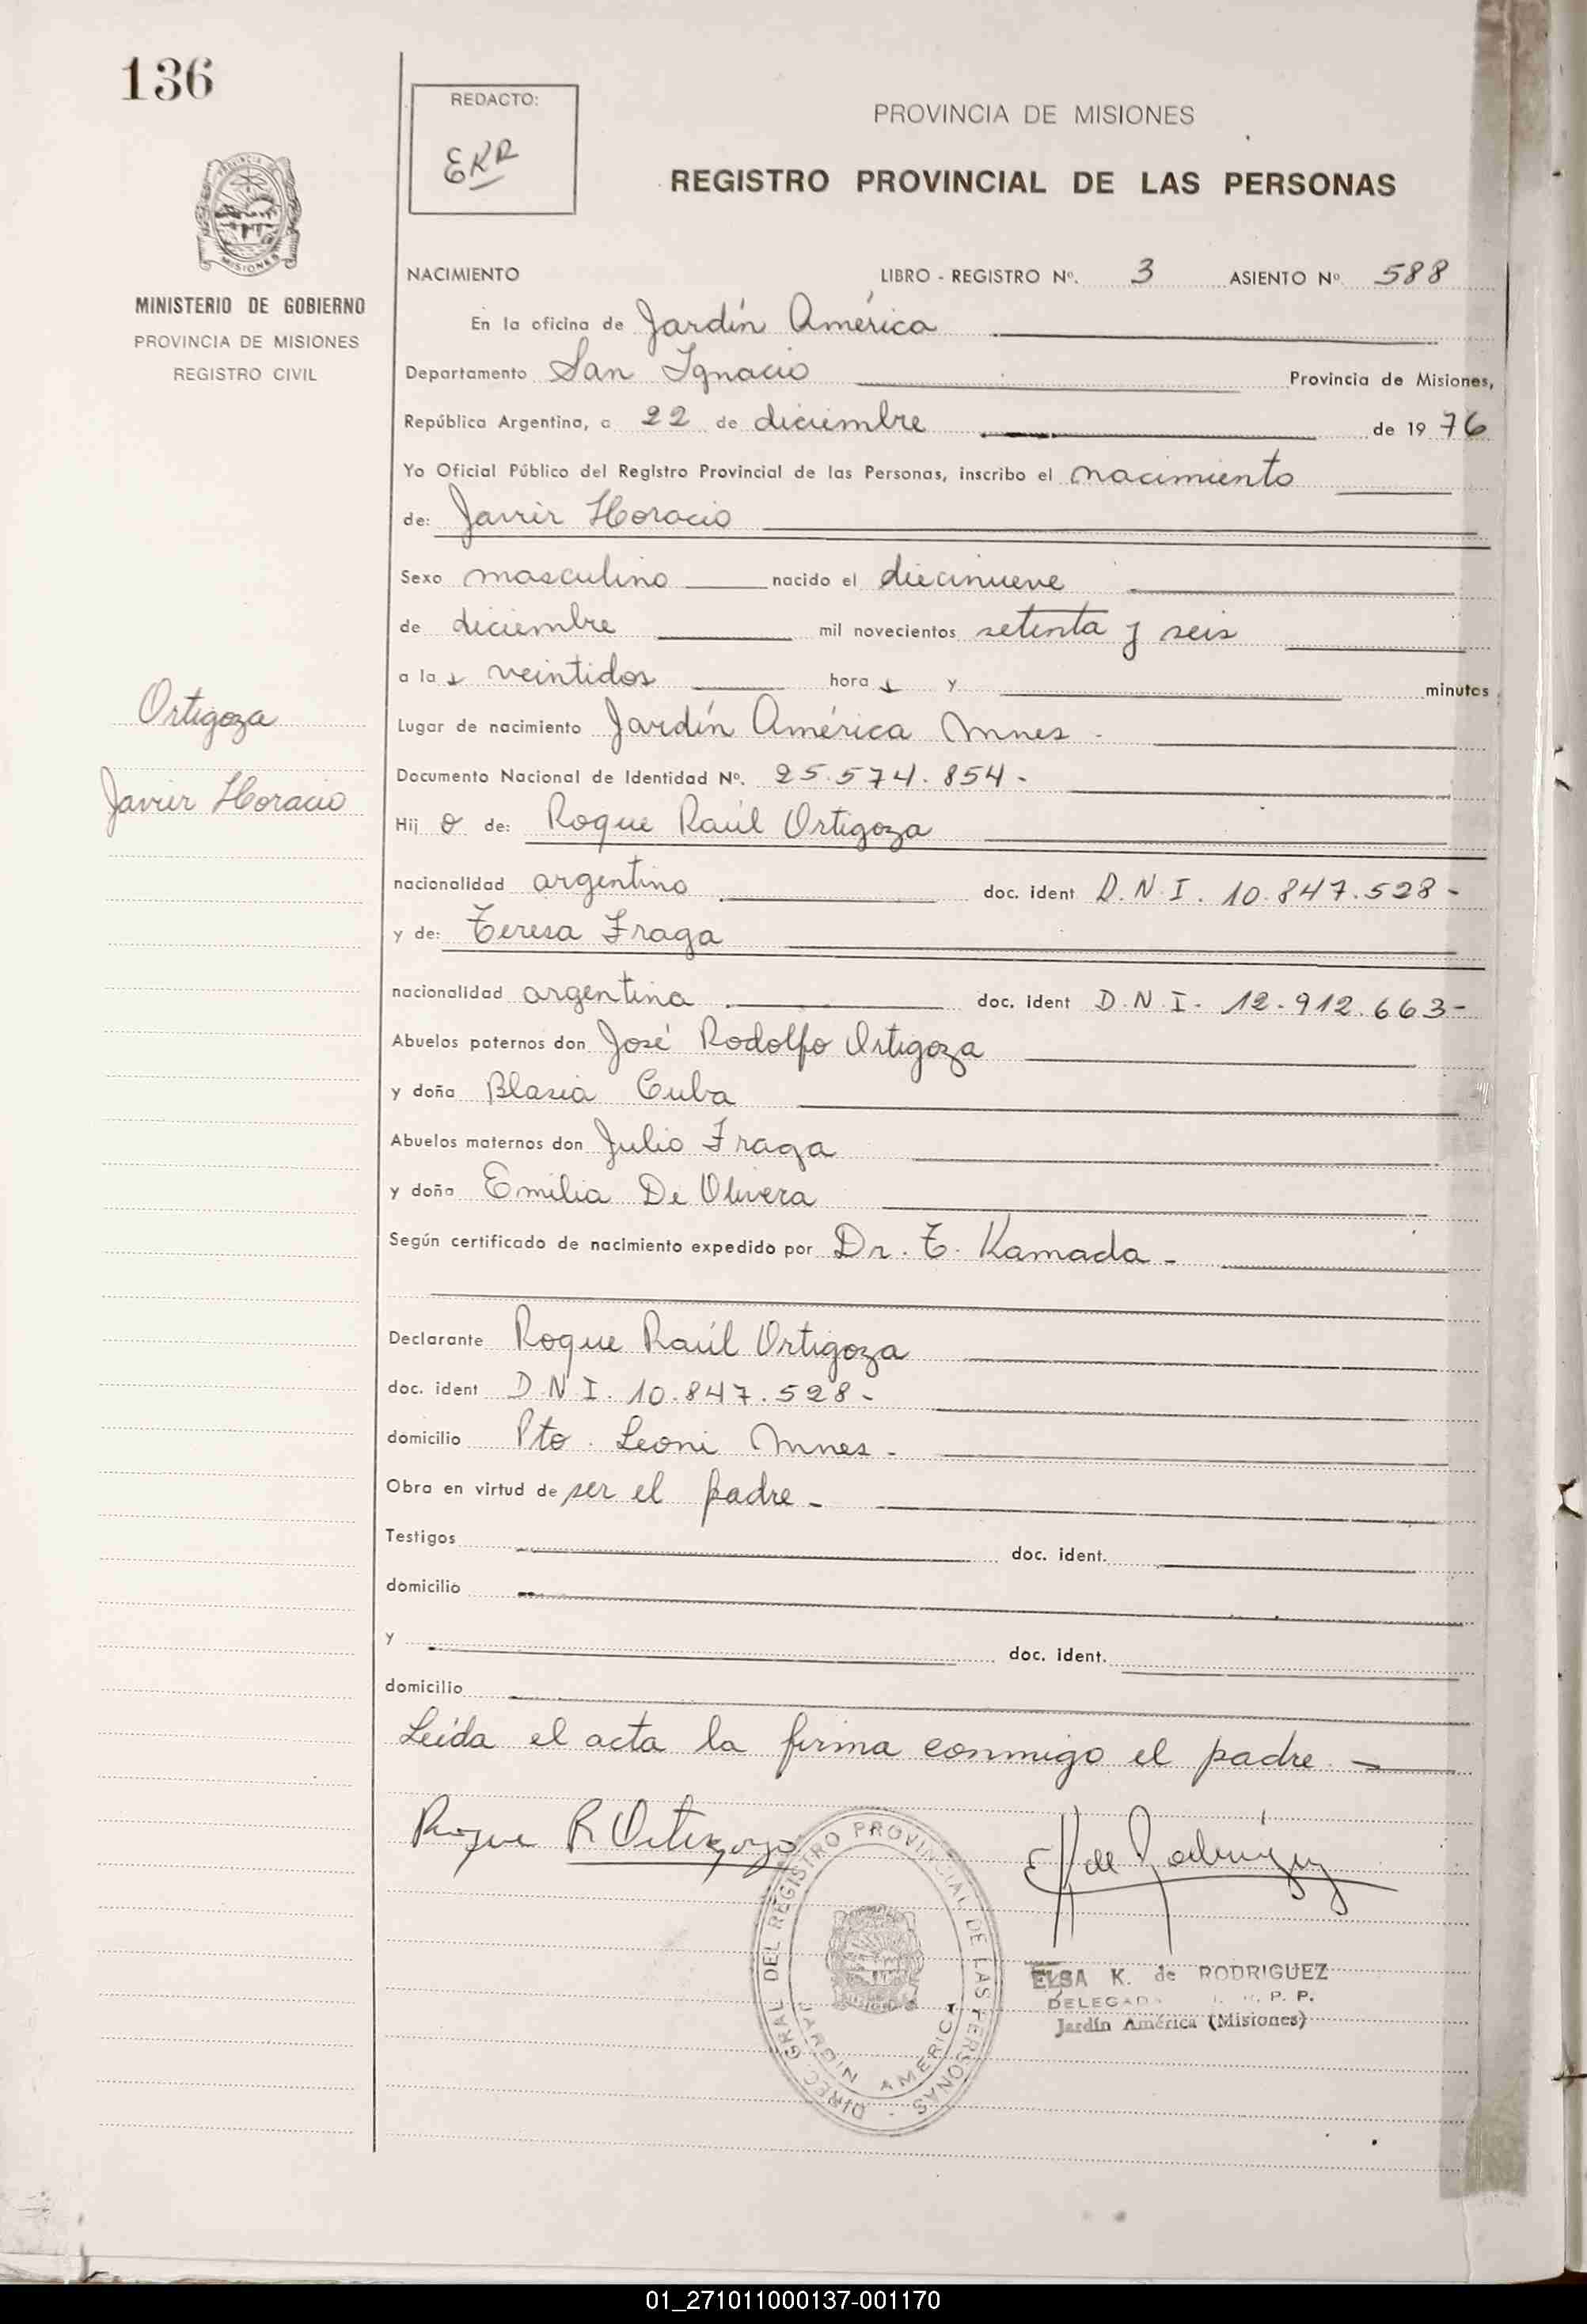 136
REDACTO:
EKR
PROVINCIA DE MISIONES
REGISTRO PROVINCIAL DE LAS PERSONAS
MISIONES
MINISTERIO DE GOBIERNO
PROVINCIA DE MISIONES
REGISTRO CIVIL
NACIMIENTO LIBRO - REGISTRO Nº. 3 ASIENTO Nº 588
En la oficina de Jardín América
Departamento San Ignacio Provincia de Misiones,
República Argentina, a 22 de diciembre de 1976
Yo Oficial Público del Registro Provincial de las Personas, inscribo el nacimiento
de: Javier Horacio
Sexo masculino nacido el diecinueve
de diciembre mil novecientos setenta y seis
a las veintidos horas y minutos
Ortigoza
Javier Horacio
Lugar de nacimiento Jardín América Mnes -
Documento Nacional de Identidad Nº. 25.574.854-
Hijo de: Roque Raúl Ortigoza
nacionalidad argentino doc. ident D.N.I. 10.847.528-
y de: Teresa Fraga
nacionalidad argentina doc. ident D.N.I. 12.912.663-
Abuelos paternos don José Rodolfo Ortigoza
y doña Blasia Cuba
Abuelos maternos don Julio Fraga
y doña Emilia De Olivera
Según certificado de nacimiento expedido por Dr. T. Kamada -
Declarante Roque Raúl Ortigoza
doc. ident D.N.I. 10.847.528-
domicilio Pto. Leoni Mnes -
Obra en virtud de ser el padre -
Testigos doc. ident.
domicilio
y doc. ident.
domicilio
Leída el acta la firma conmigo el padre. -
Roque R Ortigoza
E K de Rodriguez
DIREC. GRAL DEL REGISTRO PROVINCIAL DE LAS PERSONAS -
JARDIN AMERICA
ELSA K. de RODRIGUEZ
DELEGADA P. P.
Jardín América (Misiones)
01_271011000137-001170